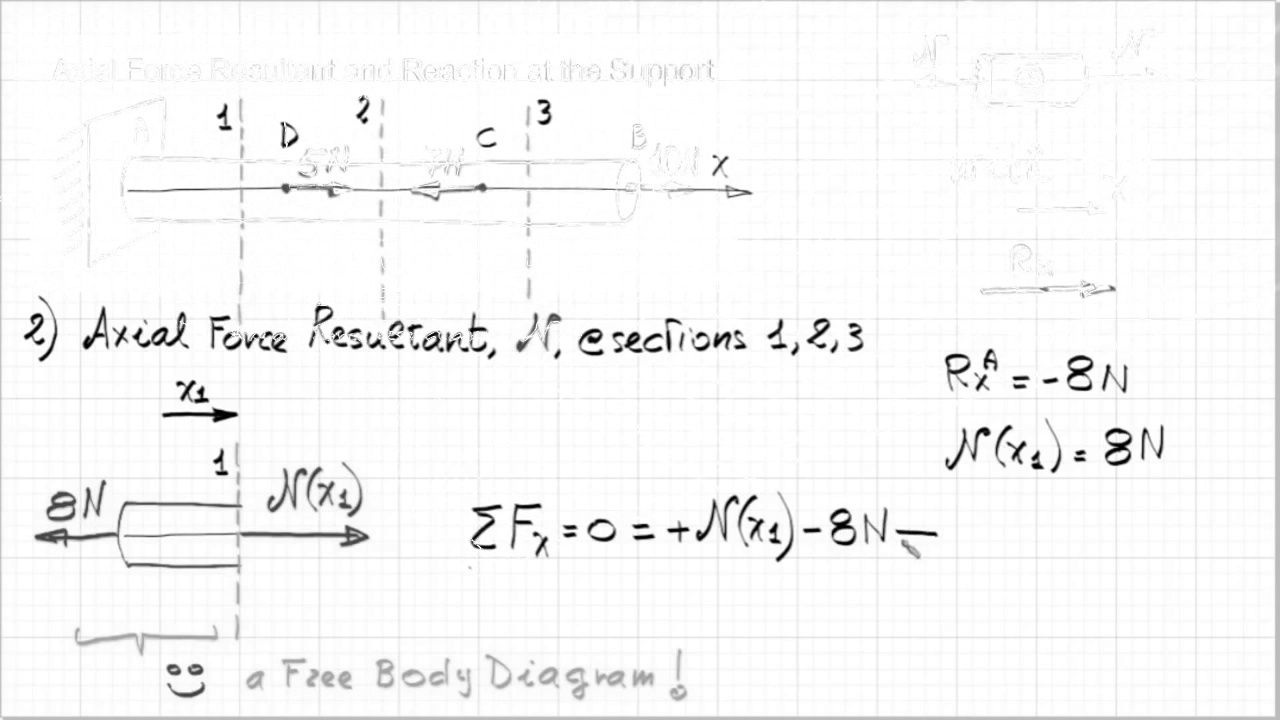 Axial Force Resultant and Reaction at the Support
N N
1 2 3
A D C B
5N 7N 10N x
x
Rx
2) Axial Force Resultant, N, @ sections 1, 2, 3
x1
RxA = -8N
N(x1) = 8N
1
8N N(x1)
ΣFx = 0 = +N(x1) - 8N
a Free Body Diagram!